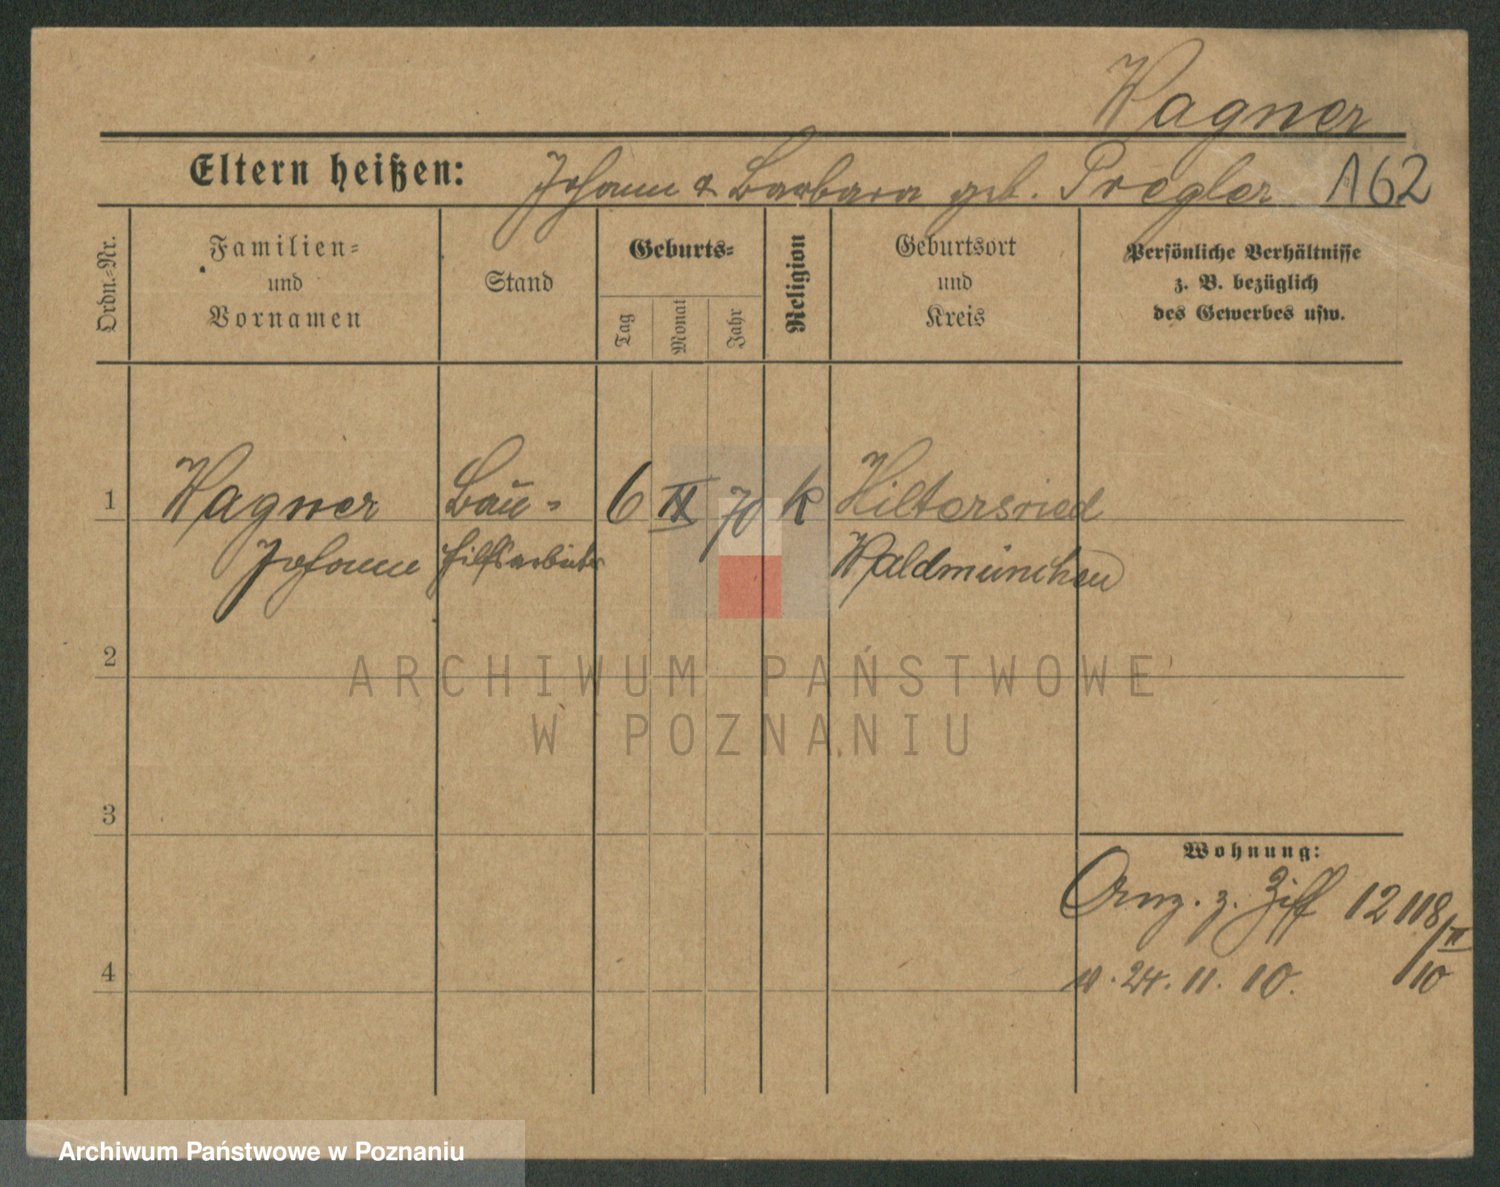 Wagner
Eltern heißen: Johann & Barbara geb. Pregler 162
Ordn.-Nr.
Familien-
und
Vornamen
Stand
Geburts-
Tag
Monat
Jahr
Religion
Geburtsort
und
Kreis
Persönliche Verhältnisse
z. B. bezüglich
des Gewerbes usw.
1 Wagner Bau- 6 70 k Hiltersried
Johann hilfsarbeiter Waldmünchen
2
ARCHIWUM PAŃSTWOWE
W POZNANIU
3
Wohnung:
z. Ziff 12118/II
4 24. 11. 10. /10
Archiwum Państwowe w Poznaniu